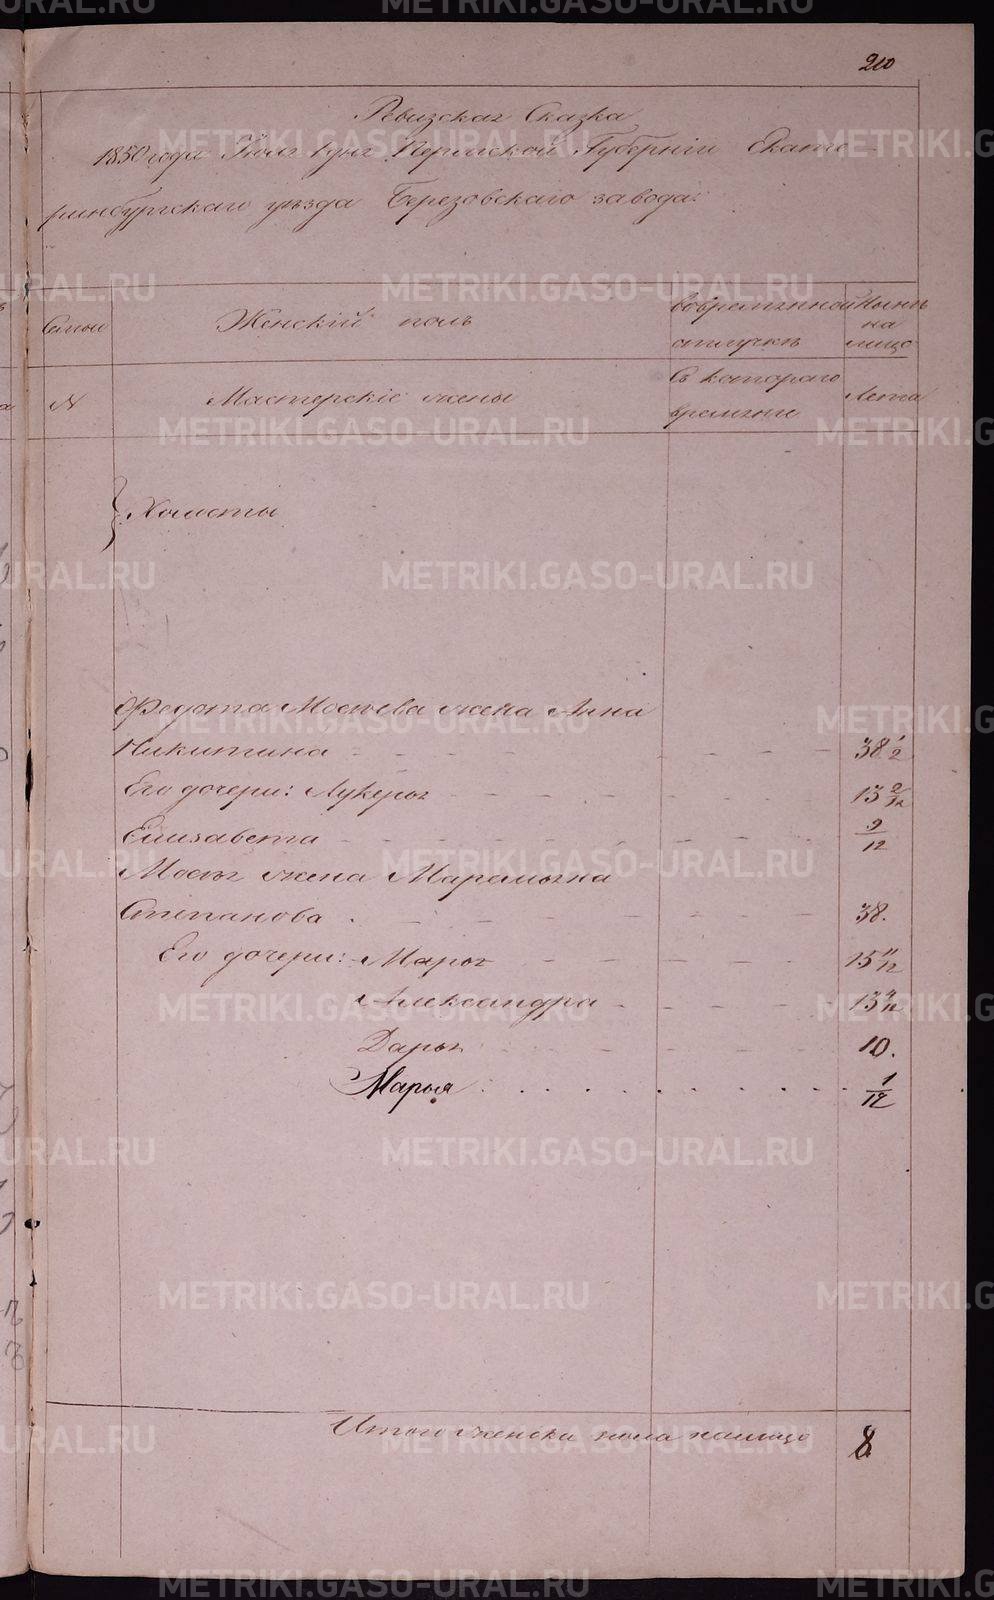 210
Ревизская Сказка
1850 года Июля 1 дня Пермской Губерніи Екате-
ринбургскаго уѣзда Березовскаго завода:
Семьи
Женскій полъ
во временной
отлучкѣ
Нынѣ
на
лицо
N
Мастерскіе жены
Съ котораго
времени
Лета
} Холосты
Федота Мосѣева жена Анна
Никитина 38 1/2
Его дочери: Лукерья 13 2/12
Елизавета 9/12
Мосѣя жена Маремьяна
Степанова 38.
Его дочери: Марья 15 11/12
Александра 13 4/12
Дарья 10.
Марья 1/12
Итого женска пола налицо 8
METRIKI.GASO-URAL.RU